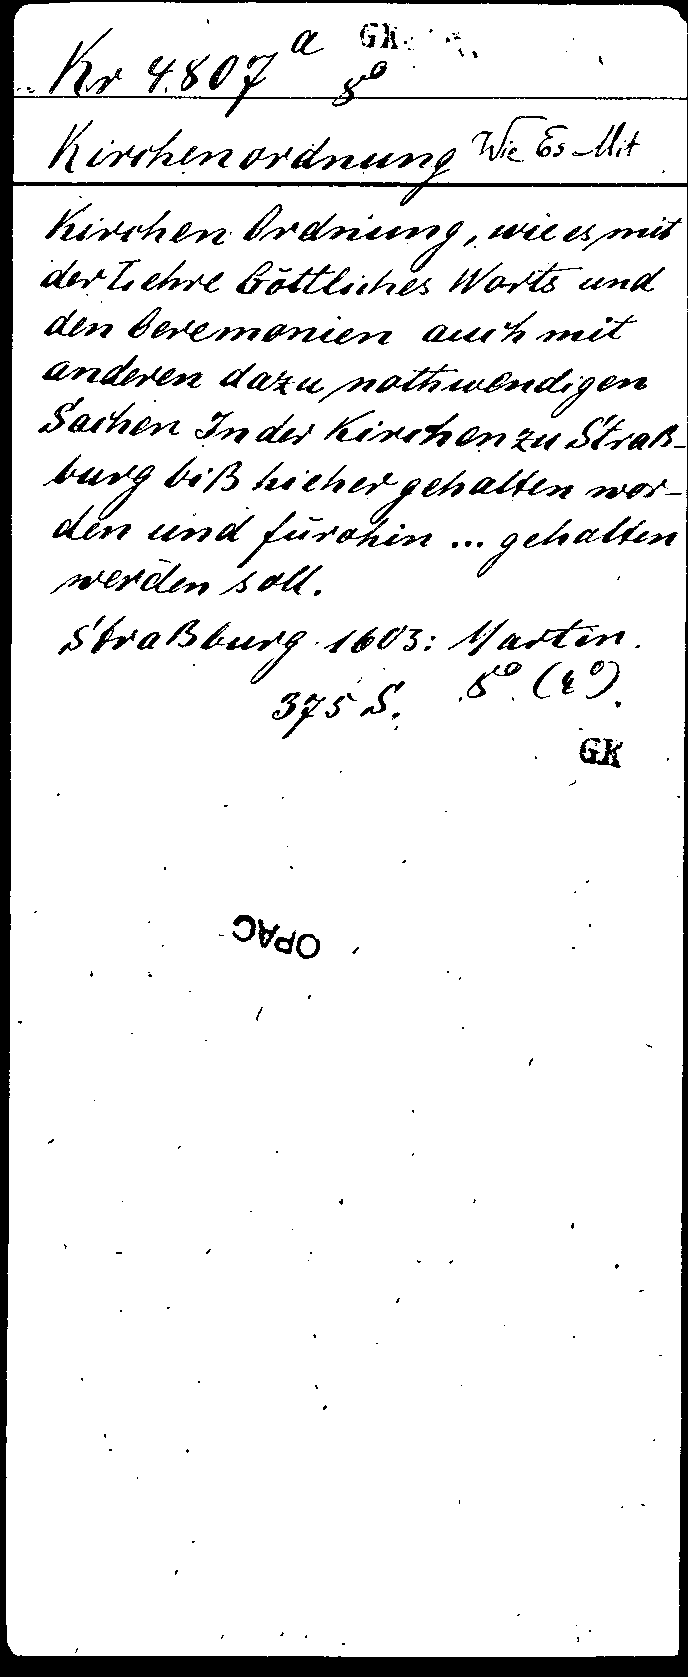 Kr 4807 a 8° GK
Kirchenordnung Wie Es Mit
Kirchen Ordnung, wie es mit
der Lehre Göttliches Worts und
den Ceremonien auch mit
anderen dazu nothwendigen
Sachen In der Kirchen zu Straß-
burg biß hieher gehalten wor-
den und fürohin ... gehalten
werden soll.
Straßburg 1603: Martin.
375 S. 8° (4°).
GK
OPAC